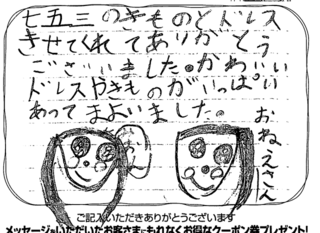 七五三のきものとドレス
きせてくれてありがとう
ございました。かわいい
ドレスやきものがいっぱい
あってまよいました。
おねえさん
ご記入いただきありがとうございます
メッセージをいただいたお客さまにもれなくお得なクーポン券プレゼント!